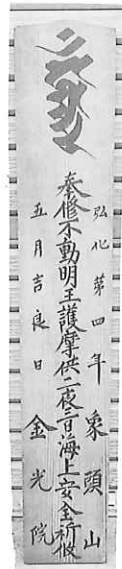 弘化第四年 象頭山
奉修不動明王護摩供二夜三日海上安全祈攸
五月吉良日 金光院